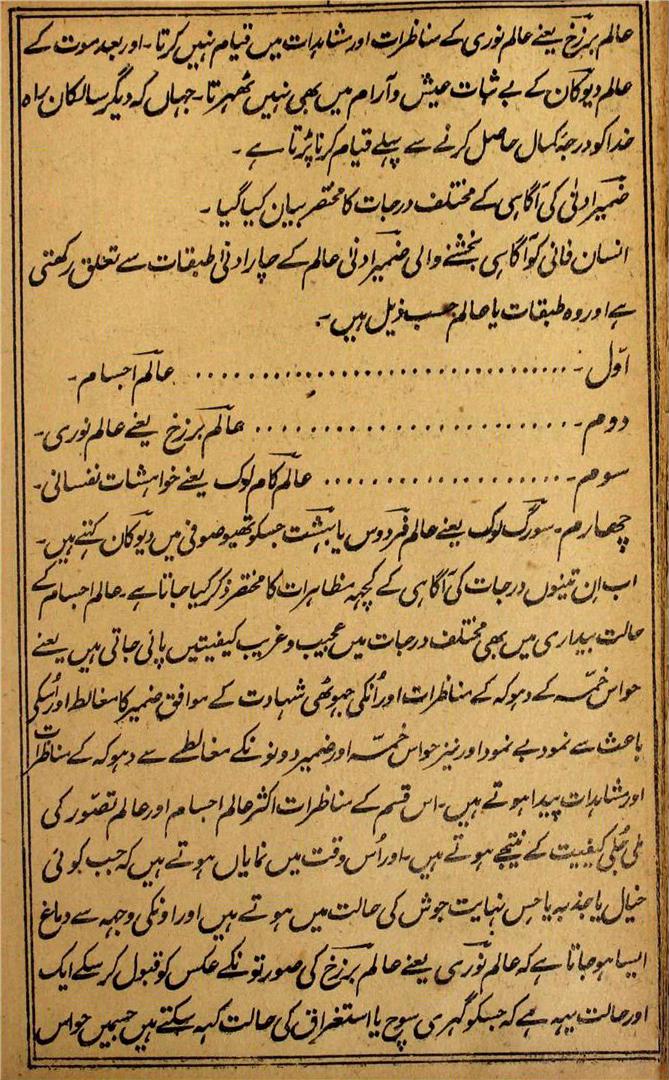 عالم برزخ یعنے عالم نوری کے مناظرات اور مشاہدات میں قیام نہیں کرتا۔ اور بعد موت کے
عالم دیوکان کے بے ثبات عیش و آرام میں بھی نہیں ٹھہرتا۔ جہاں کہ دیگر سالکان راہ
خدا کو درجہ کمال حاصل کرنے سے پہلے قیام کرنا پڑتا ہے۔
ضمیر ادنیٰ کی آگاہی کے مختلف درجات کا مختصر بیان کیا گیا۔
انسان فانی کو آگاہی بخشنے والی ضمیر ادنیٰ عالم کے چار ادنیٰ طبقات سے تعلق رکھتی
ہے اور وہ طبقات یا عالم حسب ذیل ہیں۔
اوّل۔ .............................. عالم اجسام۔
دوم۔ .............................. عالم برزخ یعنے عالم نوری۔
سوم۔ ...................... عالم کام لوک یعنے خواہشات نفسانی۔
چھارم۔ سورگ لوک یعنے عالم فردوس یا بہشت جسکو تھیوصوفی میں دیوکان کہتے ہیں۔
اب ان تینوں درجات کی آگاہی کے کچہہ مظاہرات کا مختصر ذکر کیا جاتا ہے۔ عالم اجسام کے
حالت بیداری میں بھی مختلف درجات میں عجیب و غریب کیفیتیں پائی جاتی ہیں یعنے
حواس خمسہ کے دہوکہ کے مناظرات اور اُنکی جہوٹھی شہادت کے موافق ضمیر کا مغالطہ اور اُسکی
باعث سے نمود بے نمود اور نیز حواس خمسہ اور ضمیر دونونکے مغالطے سے دہوکہ کے مناظرات
اور مشاہدات پیدا ہوتے ہیں۔ اس قسم کے مناظرات اکثر عالم اجسام اور عالم تصوّر کی
ملی جُلی کیفیت کے نتیجے ہوتے ہیں۔ اور اُس وقت میں نمایاں ہوتے ہیں کہ جب کوئی
خیال یا جذبہ یا حس نہایت جوش کی حالت میں ہوتے ہیں اور اونکی وجہہ سے دماغ
ایسا ہو جاتا ہے کہ عالم نوری یعنے عالم برزخ کی صورتونکے عکس کو قبول کر سکے ایک
اور حالت یہہ ہے کہ جسکو گہری سوچ یا استغراق کی حالت کہہ سکتے ہیں جسمیں حواس